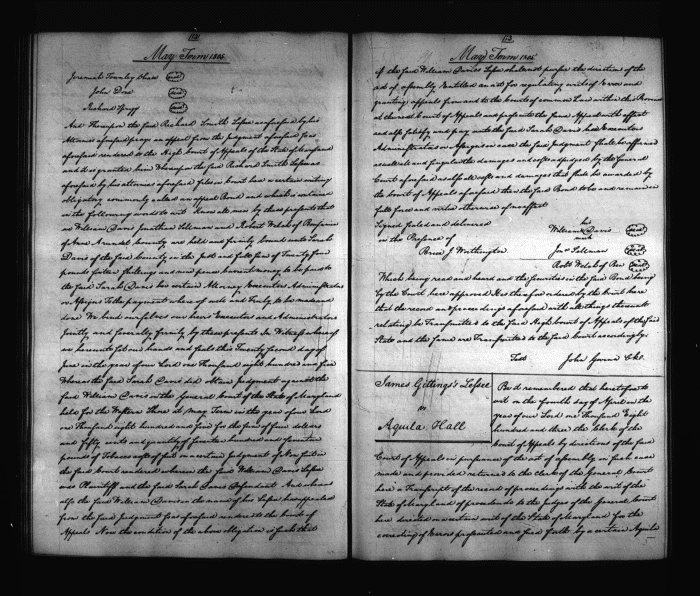 May Term 1805
Jeremiah Townley Chase (Seal)
John Done (Seal)
Richard Sprigg (Seal)
And Thereupon the said Richard Smith Lessee as aforesaid by his
Attorney aforesaid prays an appeal from the Judgment aforesaid in form
aforesaid rendered to the High Court of Appeals of the State of Maryland
and it is granted him Whereupon the said Richard Smith Lessee as
aforesaid by his attorney aforesaid files in Court here a certain writing
obligatory commonly called an appeal Bond and which is contained
in the following words to wit Know all men by these presents that
we William Davis Jonathan Sellman and Robert Welsh of Benjamin
of Anne Arundel County are held and firmly bound unto Sarah
Davis of the said County in the Just and full sum of Twenty four
pounds fifteen shillings and nine pence current money to be paid to
the said Sarah Davis her certain Attorney Executors Administrators
or Assigns To the payment where of well and Truly to be made and
done We bind ourselves our heirs Executors and Administrators
Jointly and Severally firmly by these presents In Witness whereof
we hereunto set our hands and seals this Twenty Second day of
June in the year of our Lord one Thousand Eight hundred and five
Whereas the said Sarah Davis did obtain Judgment against the
said William Davis in the General Court of the State of Maryland
held for the Western Shore at May Term in the year of our Lord
one Thousand Eight hundred and five for the sum of four dollars
and fifty cents and quantity of fourteen hundred and fourteen
pounds of Tobacco costs of suit on a certain Judgment of Non suit in
the said Court rendered wherein the said William Davis Lessee
was Plaintiff and the said Sarah Davis Defendant And where
also the said William Davis in the name of his Lessee has appealed
from the said Judgment so as aforesaid rendered to the Court of
Appeals Now the condition of the above obligation is such that
May Term 1805
if the said William Davies Lessee shall not pursue the directions of the
act of assembly Entitled an act for regulating writs of Error and
granting appeals from and to the Courts of common Law within this Province
at the next Court of Appeals and prosecute the said Appeal with effect
and also satisfy and pay unto the said Sarah Davis her Executors
Administrators or Assigns in case the said Judgment shall be affirmed
as well all and singular the damages and costs adjudged by the General
Court aforesaid as also all costs and damages that shall be awarded by
the Court of Appeals aforesaid then the said Bond to be and remain in
full force and virtue otherwise of no effect
Signed Sealed and delivered
in the Presence of
Brice J Worthington
his
William Davis (Seal)
mark
Jno Sellman (Seal)
Robt Welsh of Ben (Seal)
Which being read and heard and the securities in the said Bond being
by the Court here approved It is therefore ordered by the Court here
that the record and proceedings aforesaid with all things thereunto
relating be Transmitted to the said High Court of Appeals of the said
State and the same are Transmitted to the said Court accordingly.
Test John Gwinn Clk.
James Gittings's Lessee
vs
Aquila Hall
Be it remembered that heretofore to
wit on the fourth day of April in the
year of our Lord one Thousand Eight
hundred and three the Clerk of the
Court of Appeals by directions of the said
Court of Appeals in pursuance of the act of assembly in such case
made and provided returned to the clerk of the General Court
here a Transcript of the record of proceedings with the writ of the
State of Maryland of procedendo to the Judges of the General Court
here directed on a certain writ of the State of Maryland for the
correcting of Errors prosecuted and sued forth by a certain Aquila